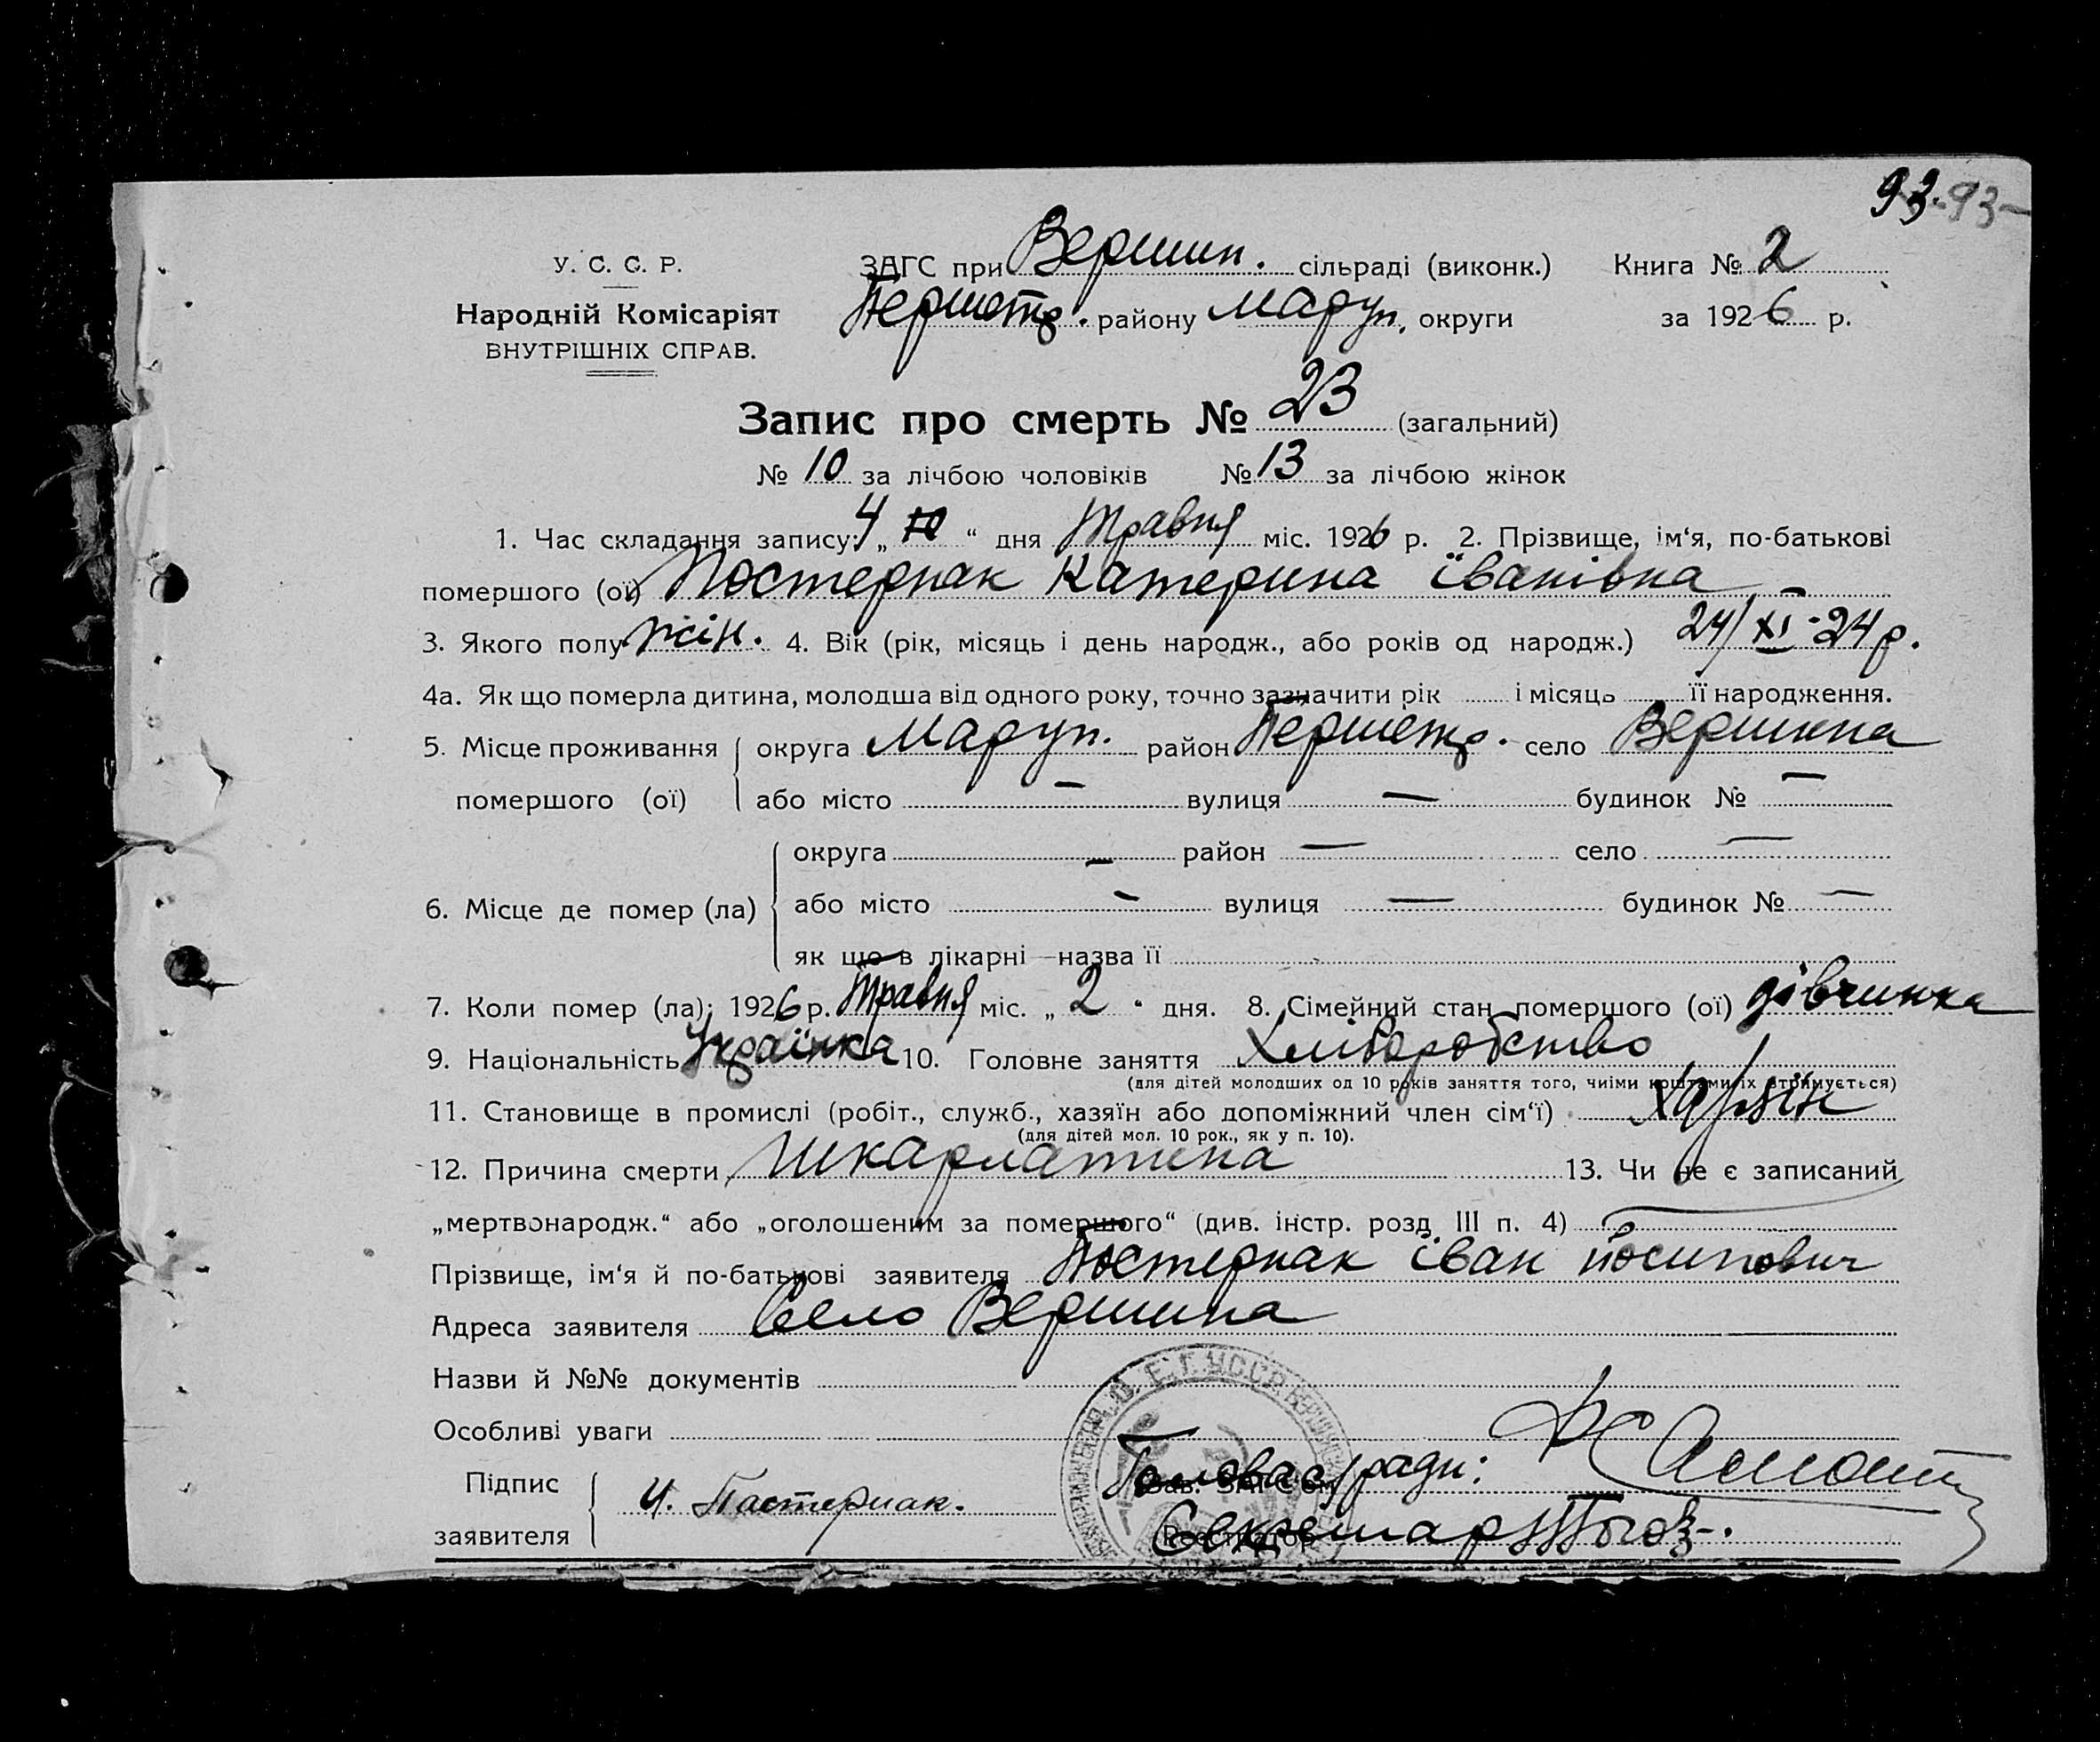 93. 93
У. С. С. Р.
ЗАГС при Вершин. сільраді (виконк.) Книга № 2
Народній Комісаріят
Першетр. району Маруп. округи за 1926 р.
ВНУТРІШНІХ СПРАВ.
Запис про смерть № 23 (загальний)
№ 10 за лічбою чоловіків № 13 за лічбою жінок
1. Час складання запису: 4 „ “ дня Травня міс. 1926 р. 2. Прізвище, ім‘я, по-батькові
помершого (ої) Постернак Катерина Іванівна
3. Якого полу жін. 4. Вік (рік, місяць і день народж., або років од народж.) 24/XI-24 р.
4а. Як що померла дитина, молодша від одного року, точно зазначити рік і місяць її народження.
5. Місце проживання округа Маруп. район Першетр. село Вершина
помершого (ої) або місто — вулиця — будинок № —
округа — район — село —
6. Місце де помер (ла) або місто — вулиця — будинок № —
як що в лікарні —назва її
7. Коли помер (ла): 1926 р. Травня міс. „ 2 “ дня. 8. Сімейний стан помершого (ої) дівчинка
9. Національність Українка 10. Головне заняття Хліборобство
(для дітей молодших од 10 років заняття того, чиїми коштами їх отримується)
11. Становище в промислі (робіт., служб., хазяїн або допоміжний член сім‘ї) Хазяїн
(для дітей мол. 10 рок., як у п. 10).
12. Причина смерти Шкарлатина 13. Чи не є записаний
„мертвонародж.“ або „оголошеним за помершого“ (див. інстр. розд III п. 4)
Прізвище, ім‘я й по-батькові заявителя Постернак Іван Йосипович
Адреса заявителя Село Вершина
Назви й №№ документів
Особливі уваги
Підпис
заявителя И. Пастернак.
Голова с/ради:
Зав. ЗАГС‘ом
Секретар
Реєстратор